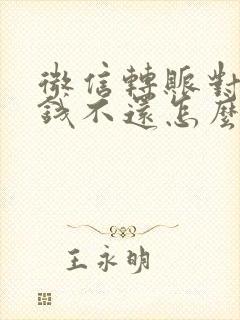 微信轉賬對
錢不還怎麼
王永明